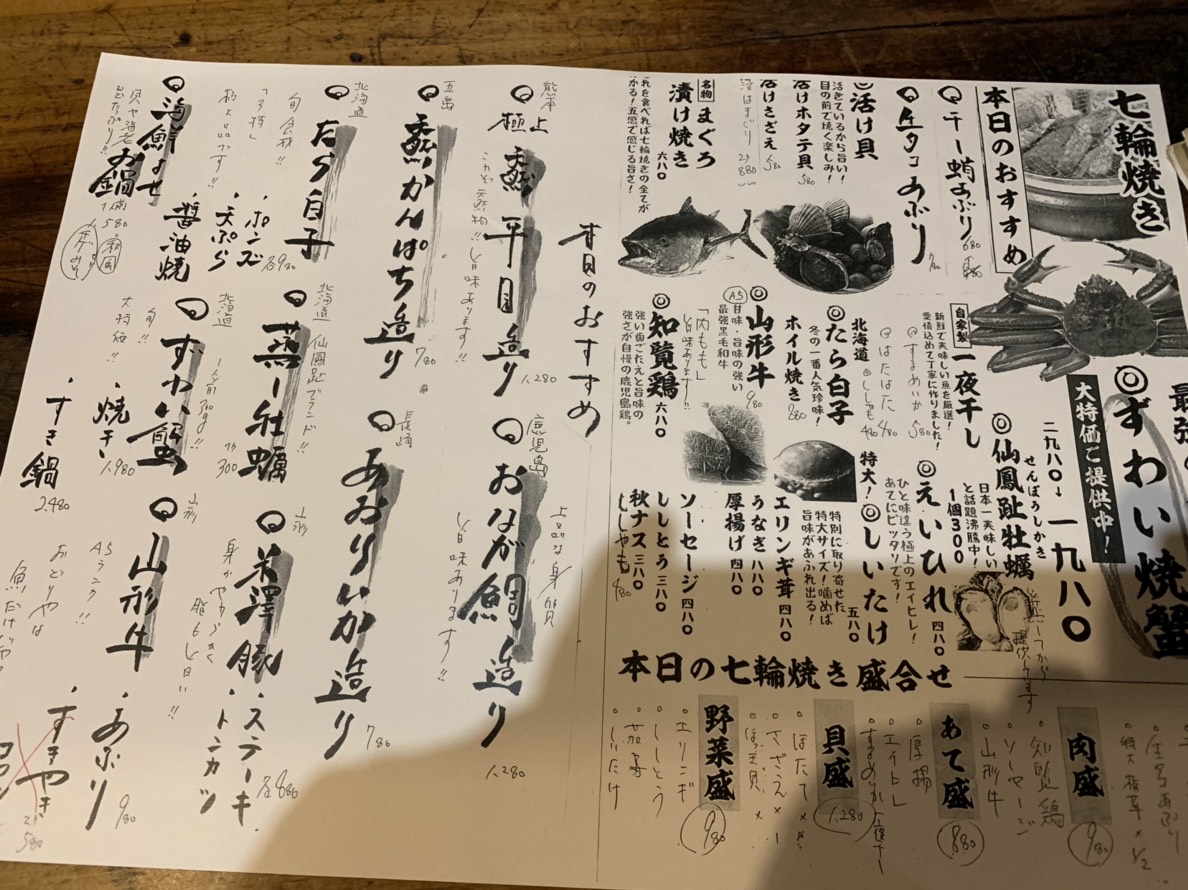 七輪焼き
最強
◎ずわい焼蟹
大特価ご提供中!
二九八〇→一九八〇
本日のおすすめ
〇干し蛸あぶり
680
〇生タコあぶり
780
◎活け貝
活きているから旨い!
目の前で焼く楽しみ!
活けホタテ貝 580
活けさざえ 580
活はまぐり 2ヶ 880
名物 まぐろ漬け焼き 六八〇
これを食べれば七輪焼きの全てが
かる!五感で感じる旨さ!
自家製 一夜干し
新鮮で美味しい魚を厳選!
愛情込めて丁寧に作りました!
◎するめいか 580
◎はたはた 480
◎ししゃも 480
◎仙鳳趾牡蠣
せんぽうしかき
日本一美味しい
と話題沸騰中!
1個300
◎えいひれ 四八〇
ひと味違う極上のエイヒレ!
あてにピッタリです!
特大!◎しいたけ 五八〇
特別に取り寄せた
特大サイズ!噛めば
旨味があふれ出る!
◎たら白子
冬の一番人気珍味!
北海道
ホイル焼き 980
A5
◎山形牛
甘味・旨味の強い
最強黒毛和牛 980
「内もも」
旨味あります!!
◎知覧鶏 六八〇
強い歯ごたえと旨味の
強さが自慢の鹿児島鶏。
エリンギ茸 四八〇
うなぎ 八八〇
厚揚げ 四八〇
ソーセージ 四八〇
ししとう 三八〇
秋ナス 三八〇
ししゃも 480
本日の七輪焼き盛合せ
・生タコあぶり
・特大椎茸×1/2
肉盛 980
・知覧鶏
・ソーセージ
・山形牛
あて盛 880
・厚揚
・エイヒレ
・するめいか一夜干
貝盛 1,280
・ほたて×
・さざえ×1
野菜盛 980
・茄子
・ししとう
・エリンギ
・しいたけ
本日のおすすめ
熊本
〇極上天然平目造り 1,280
旨味あります!!
鹿児島
〇おなが鯛造り 1,280
上品な身質
旨味あります!!
五島
〇天然かんぱち造り 780
長崎
〇あおりいか造り 780
北海道
〇たら白子
旬食材!!
・ポンズ
・天ぷら
各980
醤油焼
北海道 仙鳳趾ブランド!!
〇蒸し牡蠣
1ヶ300
山形
〇米澤豚
身がやわらかく
脂も旨い!!
・ステーキ
・トンカツ
各980
〇海鮮よせお鍋
貝や海老
1人前580
〇ずわい蟹
北海道
旬!!
大特価!!
・焼き 1,980
・すき鍋 2,480
山形
〇山形牛
A5ランク!!
・あぶり 980
・すきやき
2ヶ 580